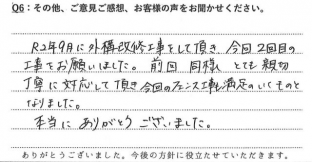 Q6：その他、ご意見ご感想、お客様の声をお聞かせください。
R2年9月に外構改修工事をして頂き、今回2回目の
工事をお願いしました。前回同様とても親切
丁寧に対応して頂き今回のフェンス工事も満足のいくものと
なりました。
本当にありがとうございました。
ありがとうございました。今後の方針に役立たせていただきます。